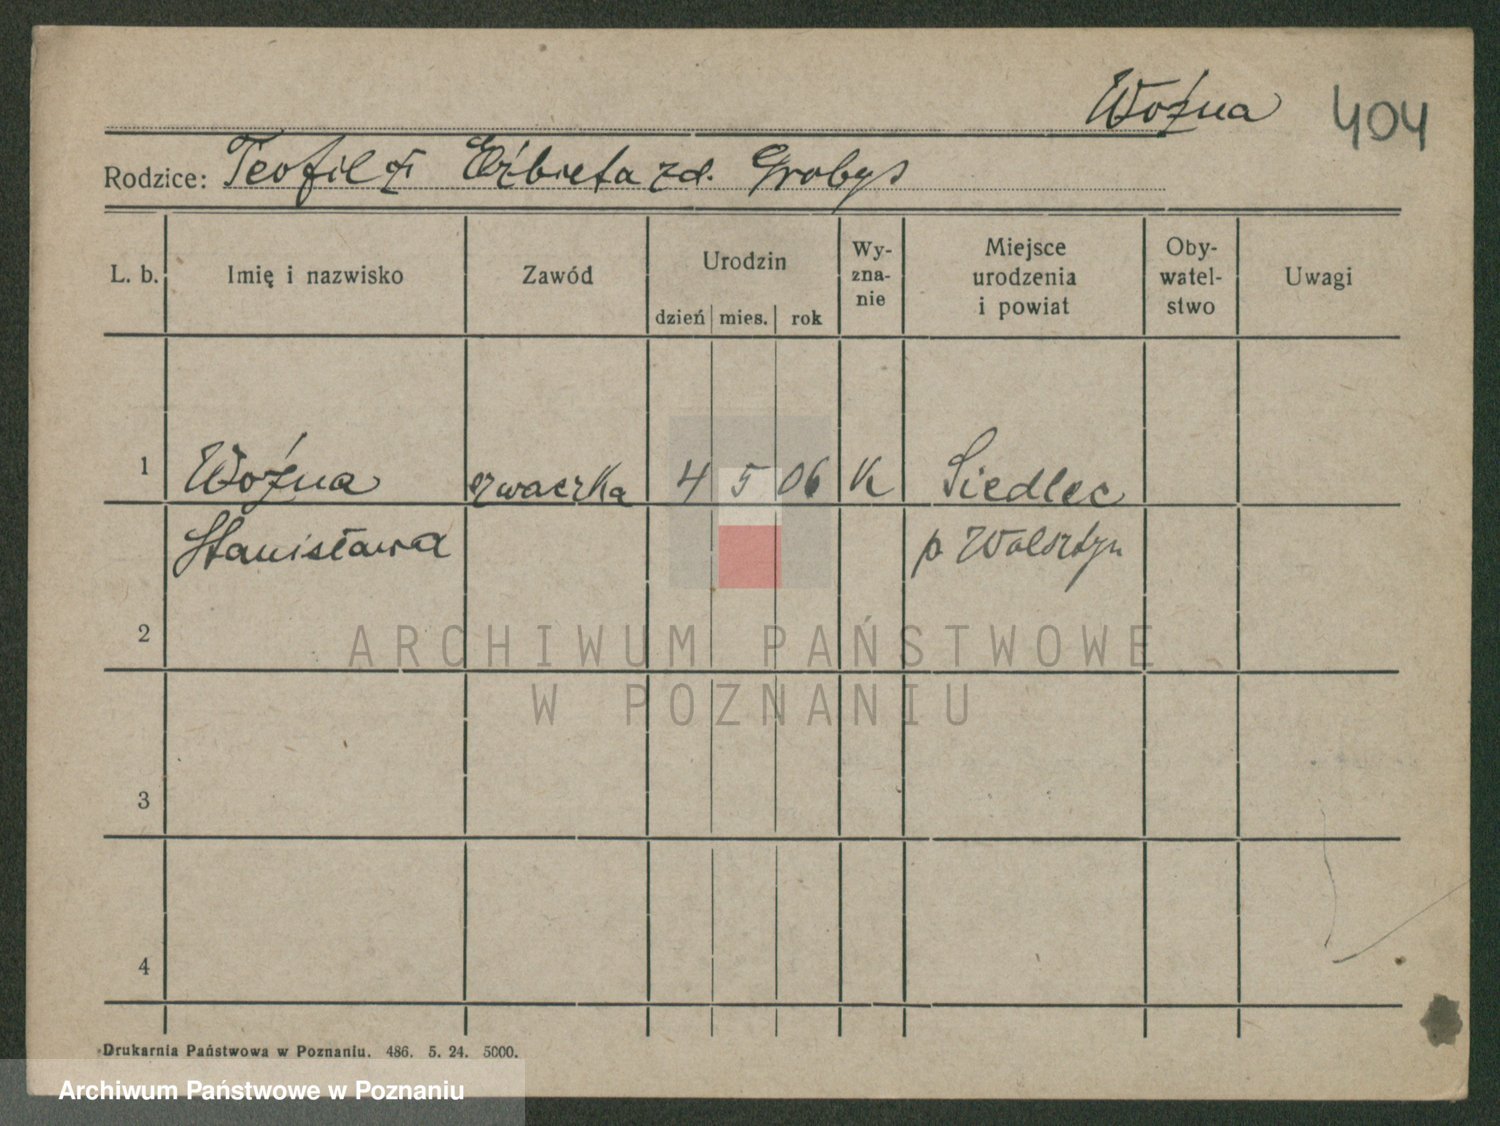 Woźna 404
Rodzice: Teofil i Elżbieta zd. Grobys
L. b. Imię i nazwisko Zawód Urodzin dzień mies. rok Wy-zna-nie Miejsce urodzenia i powiat Oby-watel-stwo Uwagi
1 Woźna szwaczka 4 5 06 K Siedlec
Stanisława p Wolsztyn
2
ARCHIWUM PAŃSTWOWE
W POZNANIU
3
4
Drukarnia Państwowa w Poznaniu. 486. 5. 24. 5000.
Archiwum Państwowe w Poznaniu